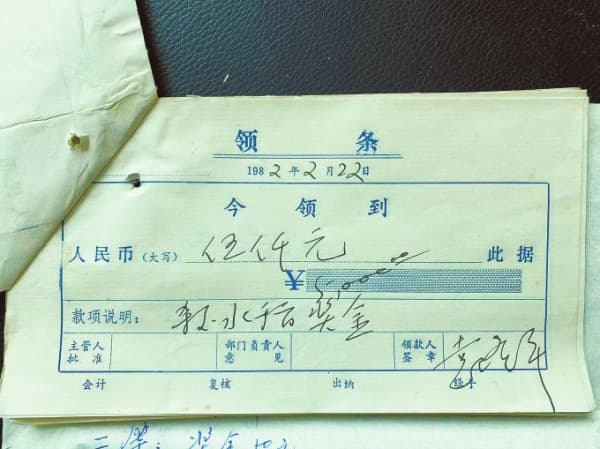 领 条
1982年2月22日
今 领 到
人民币(大写) 伍仟元 此据
¥ 5,000.00
款项说明: 水稻奖金
主管人批准 部门负责人意见 领款人签章 袁隆平
会计 复核 出纳 经手
等：奖金